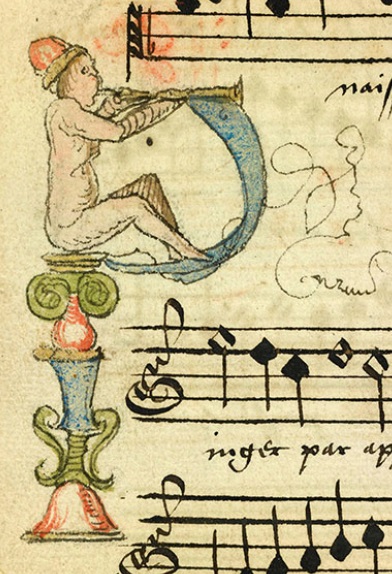 naiſſ
inger par ap